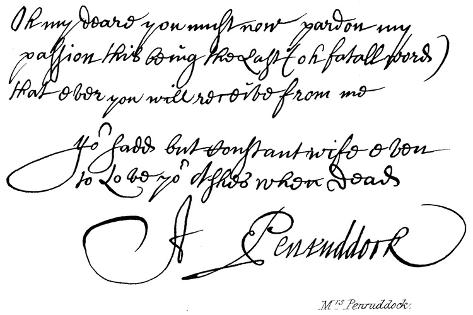 Oh my deare you must now pardon my
passion this being the Last (oh fatall word)
that ever you will receive from me
yor sadd but constant wife even
to Love yor Ashes when Dead
A Penruddock
Mrs Penruddock.